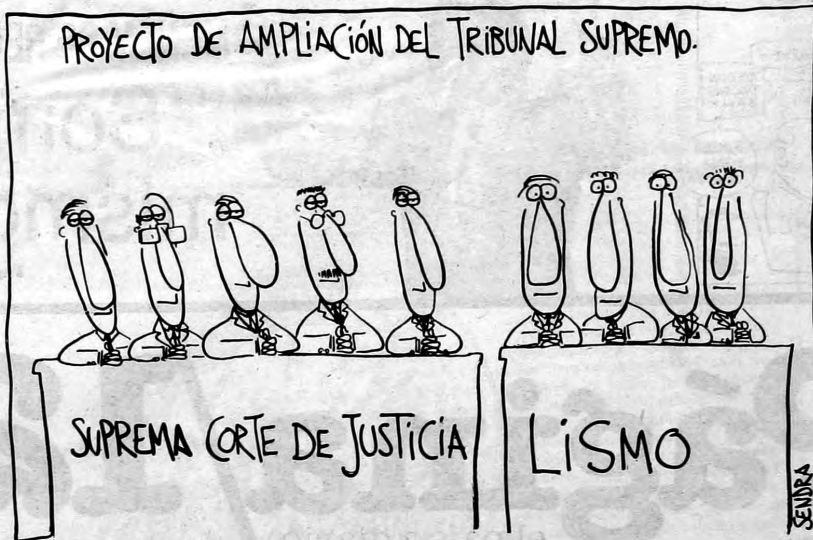 PROYECTO DE AMPLiACiÓN DEL TRiBUNAL SUPREMO.
SUPREMA CORTE DE JUSTiCiA
LiSMO
SENDRA